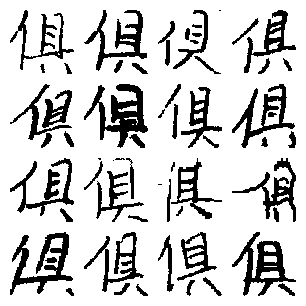 俱俱俱俱
俱俱俱俱
俱俱俱俱
俱俱俱俱